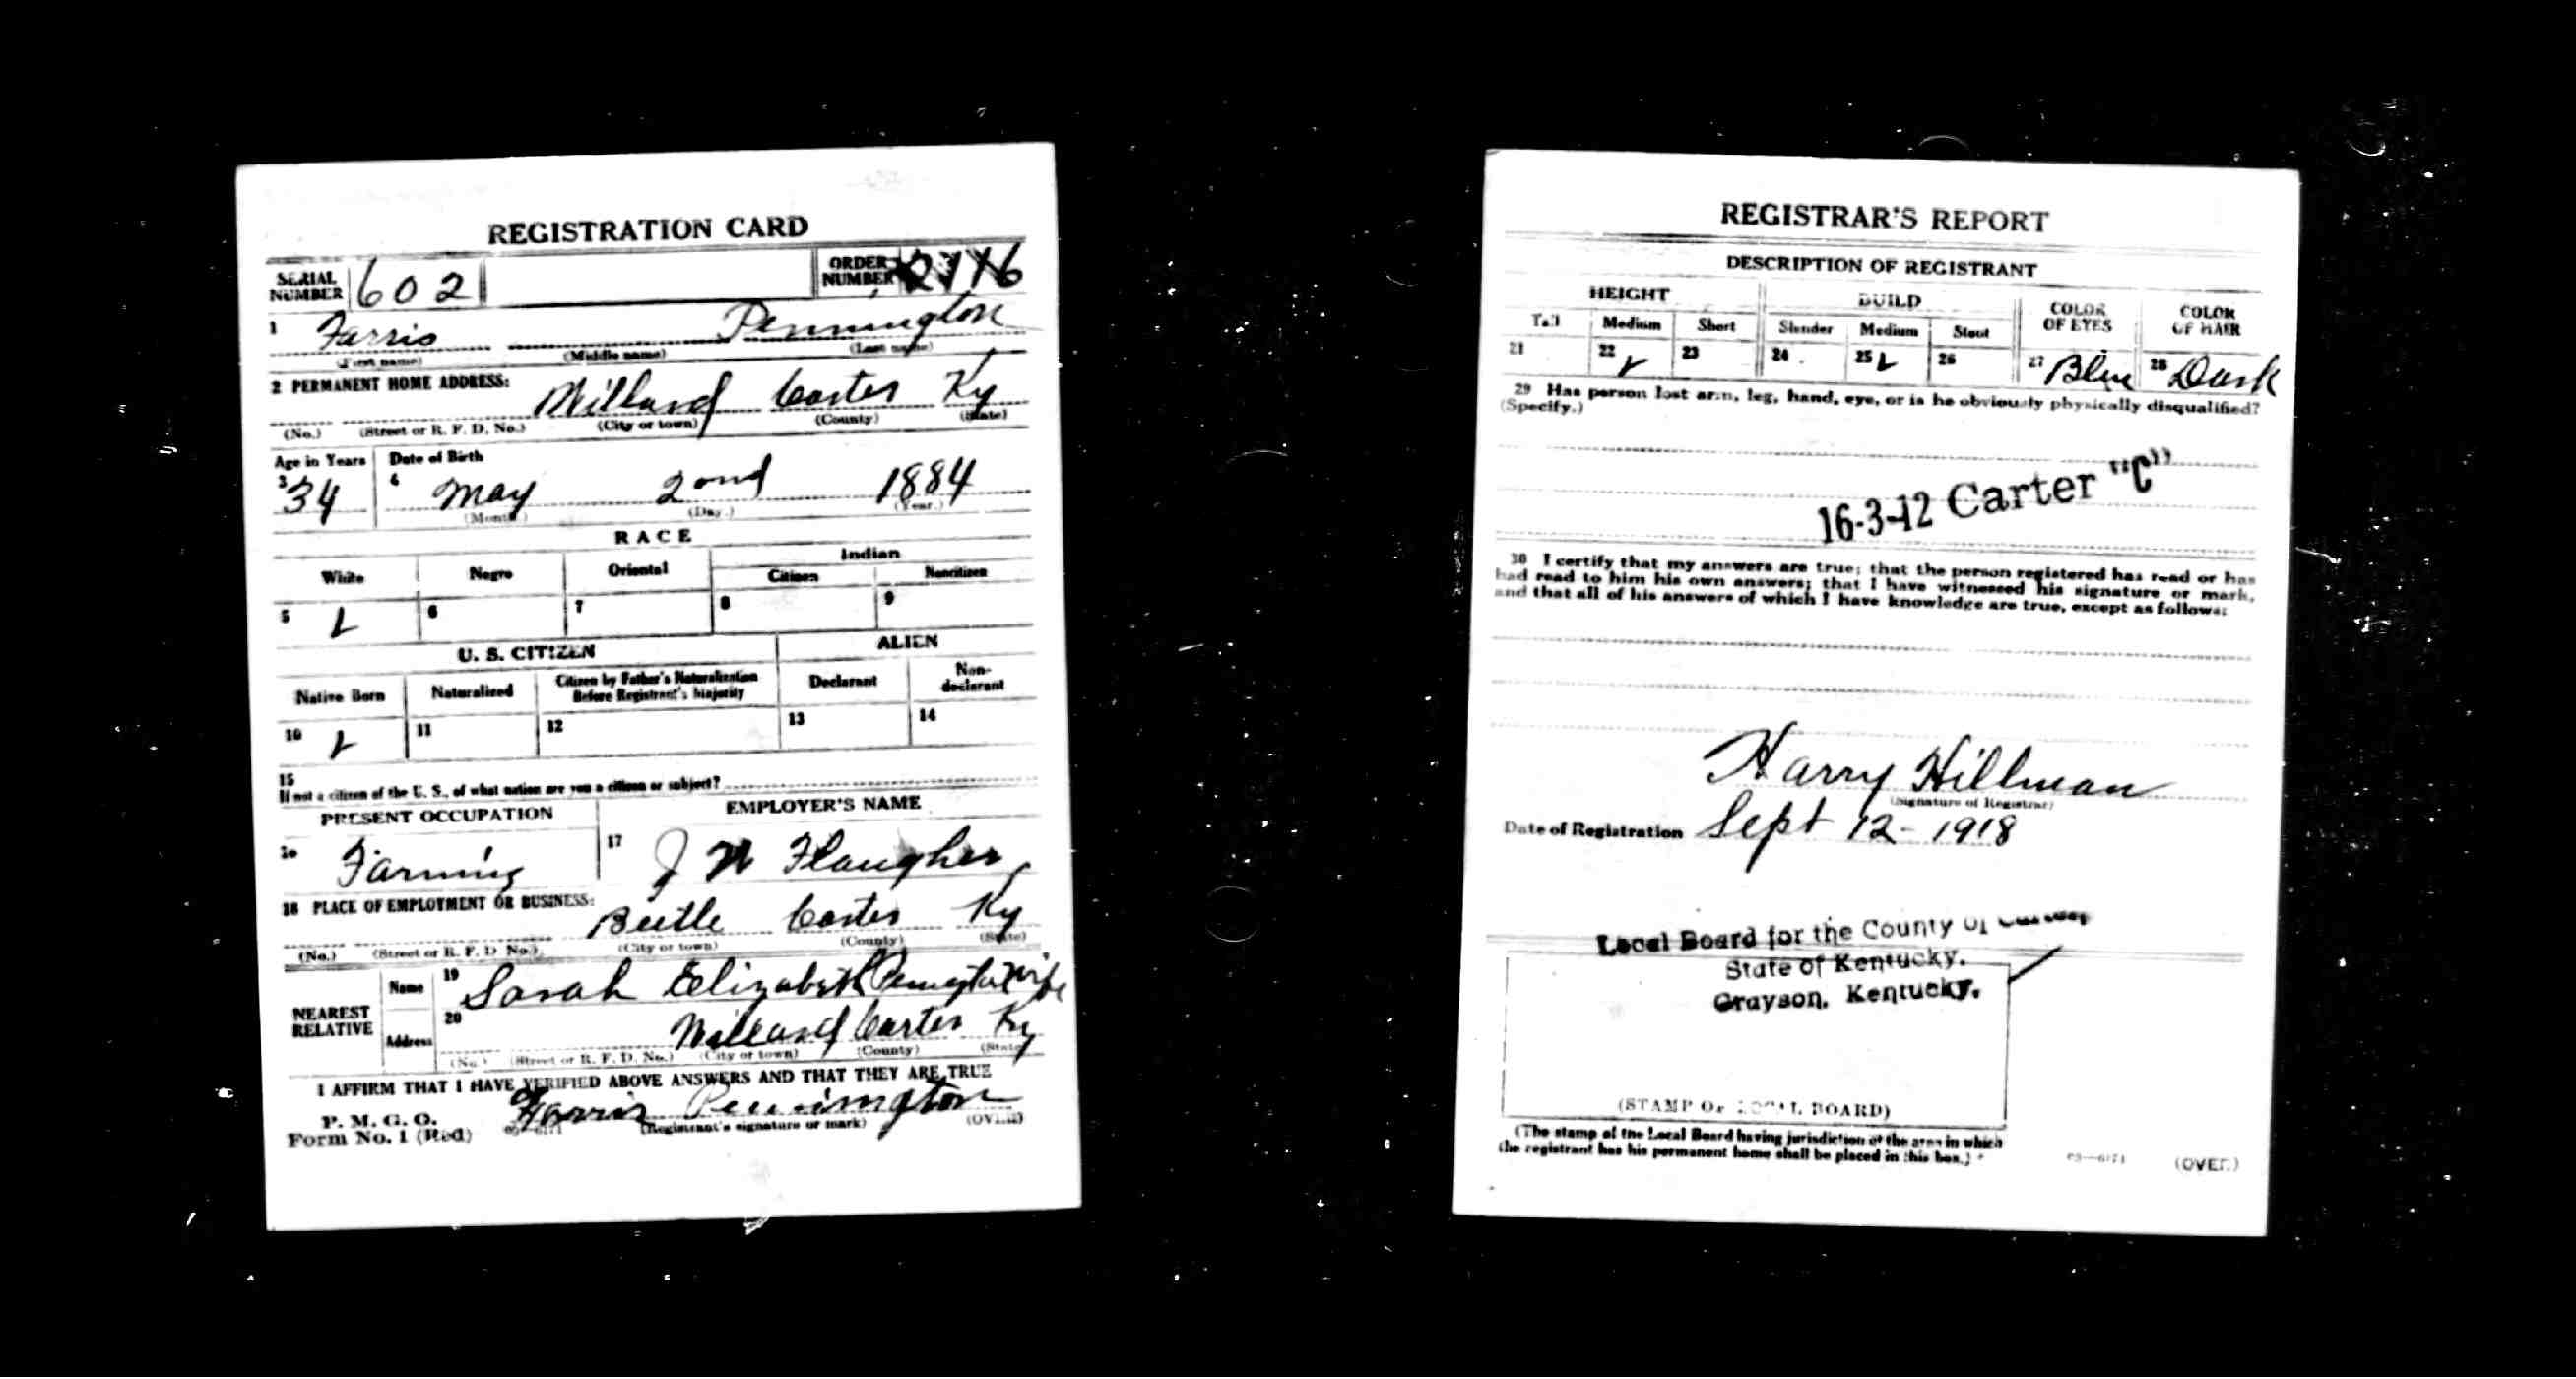 REGISTRATION CARD
SERIAL NUMBER 602 ORDER NUMBER
1 Farris Pennington
(First name) (Middle name) (Last name)
2 PERMANENT HOME ADDRESS:
Willard Carter Ky
(No.) (Street or R. F. D. No.) (City or town) (County) (State)
Age in Years Date of Birth
3 34 4 May 2ond 1884
(Month.) (Day.) (Year.)
RACE
White Negro Oriental Indian
Citizen Noncitizen
5 6 7 8 9
U. S. CITIZEN ALIEN
Native Born Naturalized Citizen by Father's Naturalization Before Registrant's Majority Declarant Non-declarant
10 11 12 13 14
15
If not a citizen of the U. S., of what nation are you a citizen or subject?
PRESENT OCCUPATION EMPLOYER'S NAME
16 Farming 17 J N Flaugher
18 PLACE OF EMPLOYMENT OR BUSINESS:
Beetle Carter Ky
(No.) (Street or R. F. D. No.) (City or town) (County) (State)
NEAREST RELATIVE
Name 19 Sarah Elizabeth Pennington Wife
Address 20 Willard Carter Ky
(No.) (Street or R. F. D. No.) (City or town) (County) (State)
I AFFIRM THAT I HAVE VERIFIED ABOVE ANSWERS AND THAT THEY ARE TRUE
P. M. G. O.
Form No. 1 (Red)
Farris Pennington
(Registrant's signature or mark) (OVER)
REGISTRAR'S REPORT
DESCRIPTION OF REGISTRANT
HEIGHT BUILD COLOR OF EYES COLOR OF HAIR
Tall Medium Short Slender Medium Stout
21 22 23 24 25 26 27 Blue 28 Dark
29 Has person lost arm, leg, hand, eye, or is he obviously physically disqualified?
(Specify.)
16-3-12 Carter "C"
30 I certify that my answers are true; that the person registered has read or has
had read to him his own answers; that I have witnessed his signature or mark,
and that all of his answers of which I have knowledge are true, except as follows:
Harry Hillman
(Signature of Registrar)
Date of Registration Sept 12 - 1918
Local Board for the County of
State of Kentucky.
Grayson, Kentucky.
(STAMP OF LOCAL BOARD)
(The stamp of the Local Board having jurisdiction of the area in which
the registrant has his permanent home shall be placed in this box.)
03—6171 (OVER)